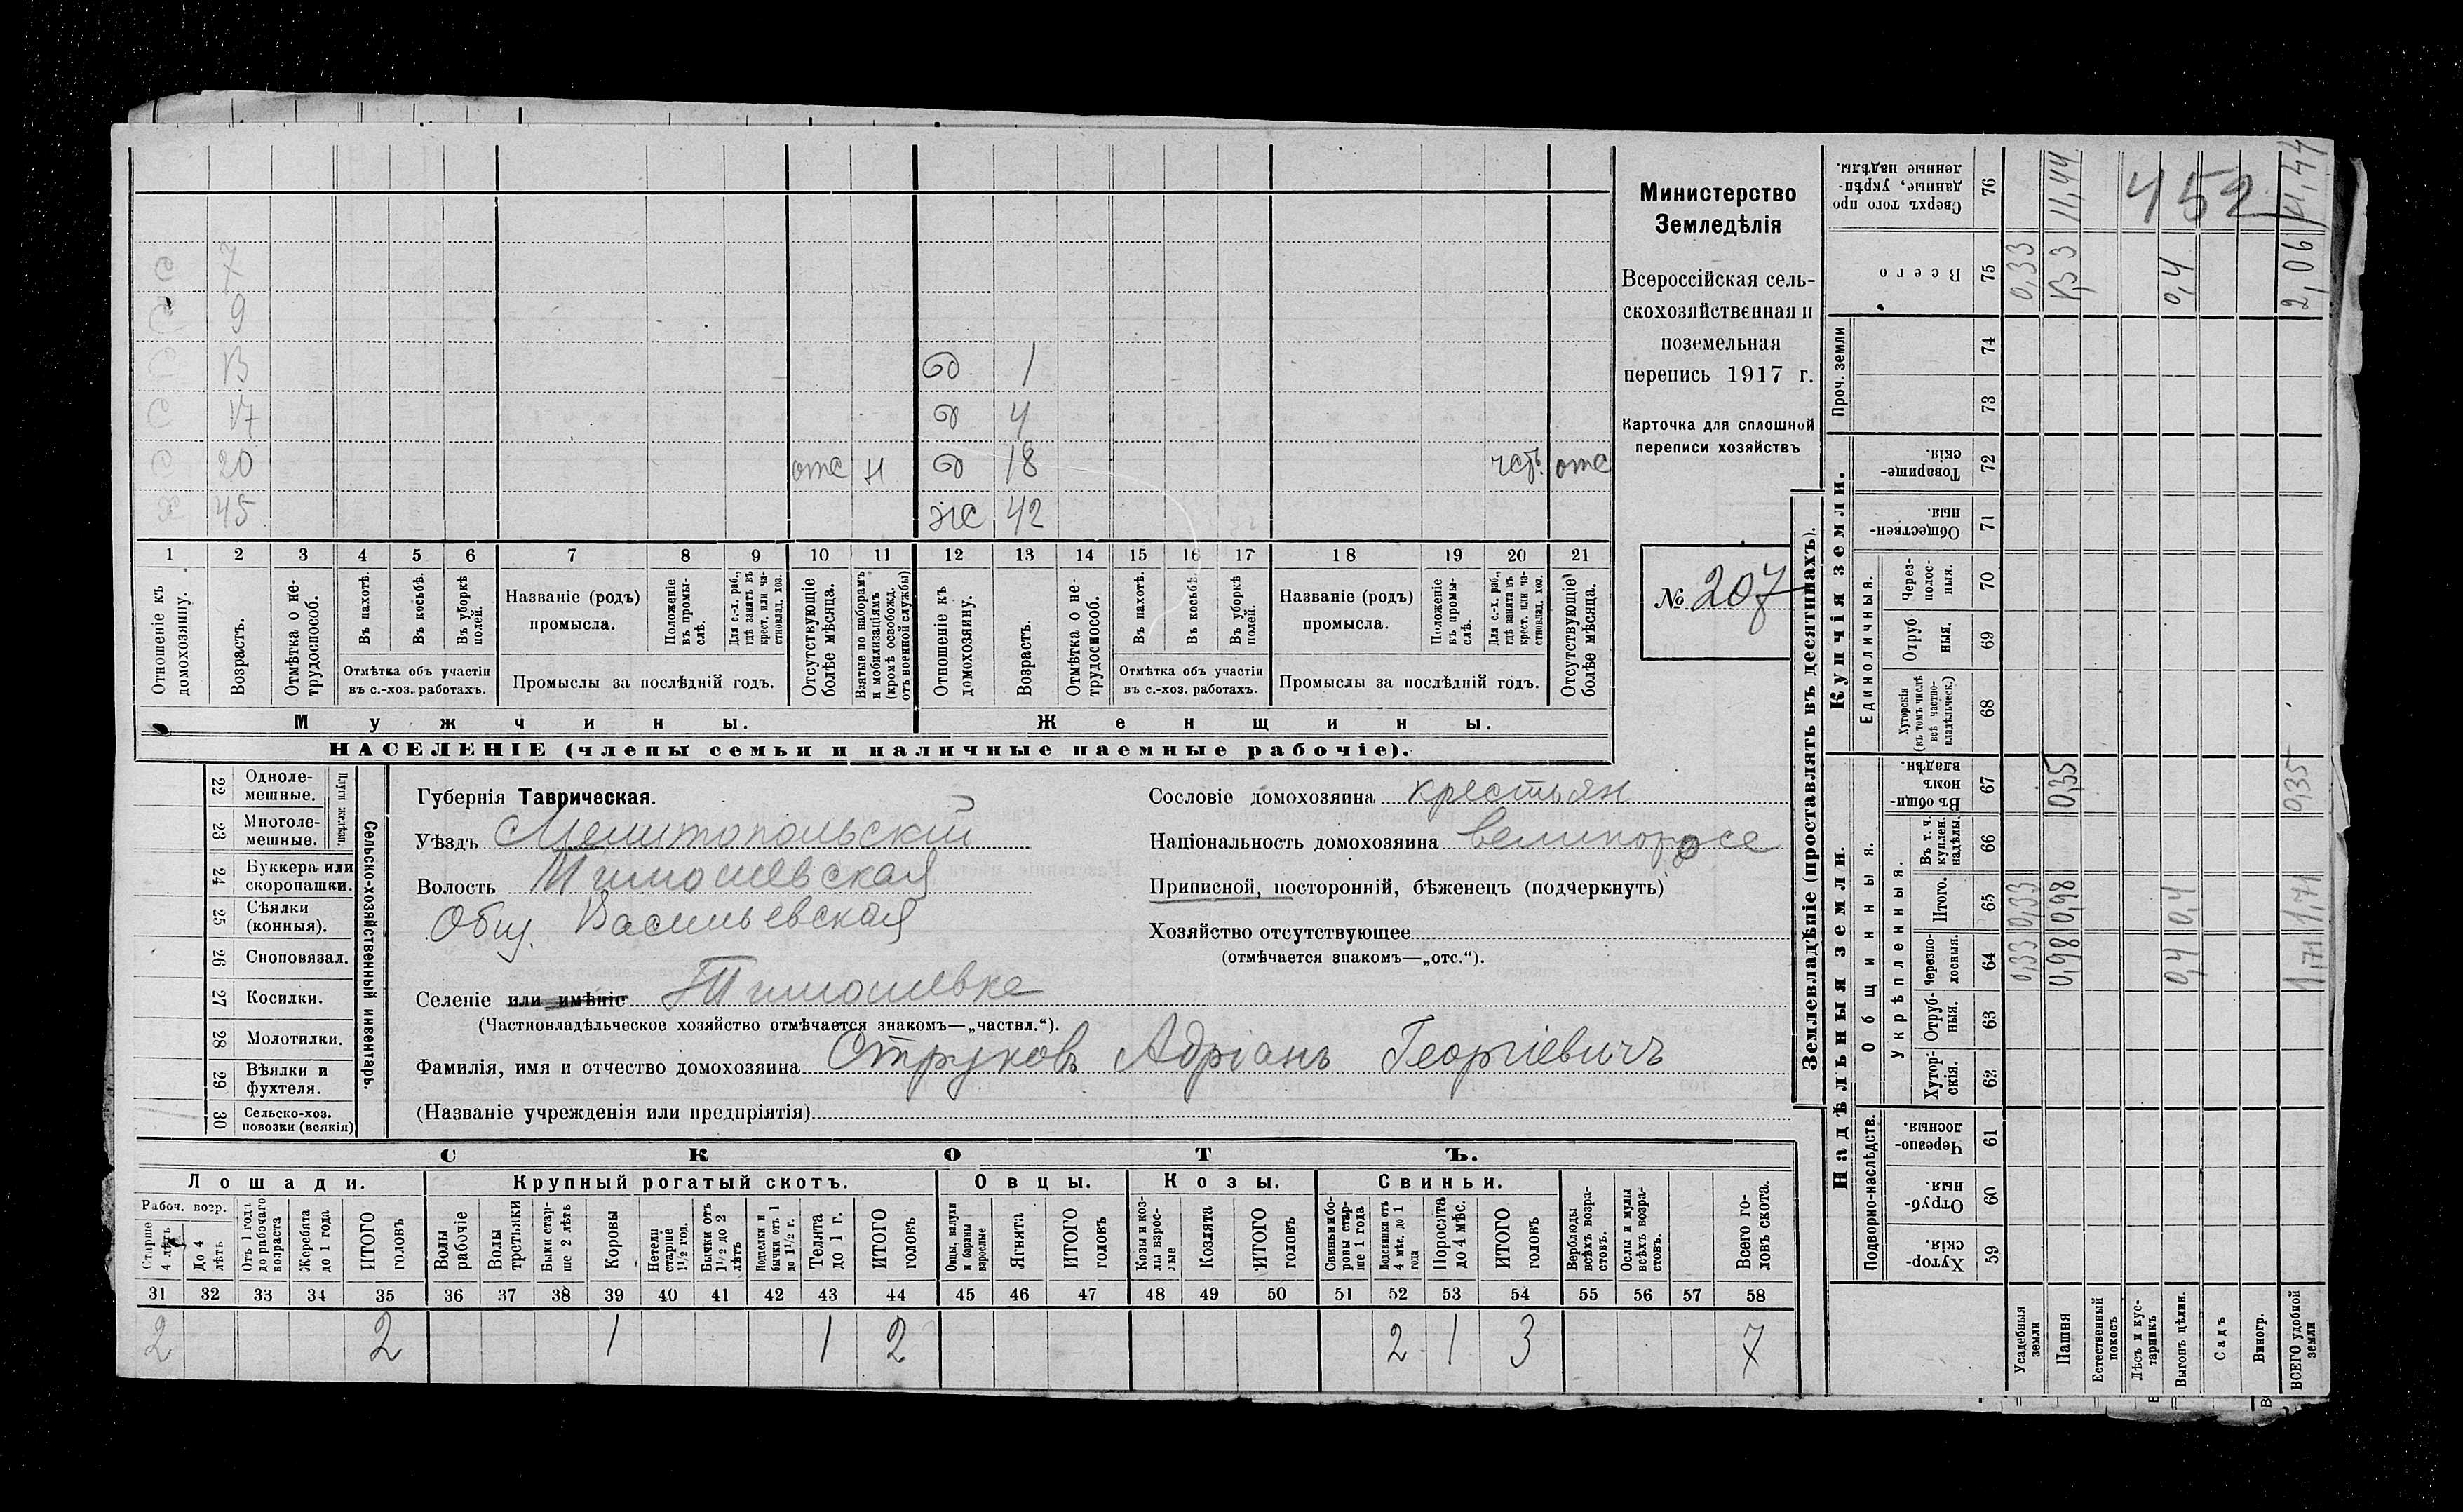 7
9
13
д 1
17
д 4
с 20 отс н д 18 част. отс
х 45 жс 42
1 2 3 4 5 6 7 8 9 10 11 12 13 14 15 16 17 18 19 20 21
Отношеніе къ домохозяину.
Возрастъ.
Отмѣтка о нетрудоспособ.
Въ пахотѣ.
Въ косьбѣ.
Въ уборкѣ полей.
Отмѣтка объ участіи
въ с.-хоз. работахъ.
Названіе (родъ)
промысла.
Положеніе въ промыслѣ.
Для с.-х. раб., гдѣ занятъ въ крест. или частновлад. хоз.
Промыслы за послѣдній годъ.
Отсутствующіе болѣе мѣсяца.
Взятые по наборамъ и мобилизаціямъ (кромѣ освобожд. отъ военной службы)
Отношеніе къ домохозяину.
Возрастъ.
Отмѣтка о нетрудоспособ.
Въ пахотѣ.
Въ косьбѣ.
Въ уборкѣ полей.
Отмѣтка объ участіи
въ с.-хоз. работахъ.
Названіе (родъ)
промысла.
Положеніе въ промыслѣ.
Для с.-х. раб., гдѣ занята въ крест. или частновлад. хоз.
Промыслы за послѣдній годъ.
Отсутствующіе болѣе мѣсяца.
Мужчины. Женщины.
НАСЕЛЕНІЕ (члены семьи и наличные наемные рабочіе).
Министерство
Земледѣлія
Всероссійская сель-
скохозяйственная и
поземельная
перепись 1917 г.
Карточка для сплошной
переписи хозяйствъ
№ 207
22 Одноле-
мешные.
23 Многоле-
мешные.
Плуги желѣзн.
24 Буккера или
скоропашки.
25 Сѣялки
(конныя).
26 Сноповязал.
27 Косилки.
28 Молотилки.
29 Вѣялки и
фухтеля.
30 Сельско-хоз.
повозки (всякія)
Сельско-хозяйственный инвентарь.
Губернія Таврическая.
Уѣздъ Мелитопольскій
Волость Тимошевская
Общ. Васильевская
Селеніе или имѣніе Тимошевке
(Частновладѣльческое хозяйство отмѣчается знакомъ—„частвл.“).
Фамилія, имя и отчество домохозяина Струковъ Адріанъ Георгіевичъ
(Названіе учрежденія или предпріятія)
Сословіе домохозяина крестьян
Національность домохозяина великоросс
Приписной, посторонній, бѣженецъ (подчеркнуть)
Хозяйство отсутствующее
(отмѣчается знакомъ—„отс.“).
СКОТЪ.
Лошади. Крупный рогатый скотъ. Овцы. Козы. Свиньи.
Рабоч. возр.
Старше 4 лѣтъ
До 4 лѣтъ
Отъ 1 года до рабочаго возраста
Жеребята до 1 года
ИТОГО головъ
Волы рабочіе
Волы третьяки
Быки старше 2 лѣтъ
Коровы
Нетели старше 1½ год.
Бычки отъ 1½ до 2 лѣтъ
Подтелки и бычки отъ 1 до 1½ г.
Телята до 1 г.
ИТОГО головъ
Овцы, валухи и бараны взрослые
Ягнята
ИТОГО головъ
Козы и козлы взрослые
Козлята
ИТОГО головъ
Свиньи и боровы старше 1 года
Подсвинки отъ 4 мѣс. до 1 года
Поросята до 4 мѣс.
ИТОГО головъ
Верблюды всѣхъ возрастовъ.
Ослы и мулы всѣхъ возрастовъ.
Всего головъ скота.
31 32 33 34 35 36 37 38 39 40 41 42 43 44 45 46 47 48 49 50 51 52 53 54 55 56 57 58
2 2 1 1 2 2 1 3 7
Землевладѣніе (проставлять въ десятинахъ).
Надѣльныя земли. Купчія земли. Проч. земли
Подворно-наслѣдств.
Общинныя.
Укрѣпленныя.
Единоличныя.
Хуторскія. 59
Отрубныя. 60
Черезполосныя. 61
Хуторскія. 62
Отрубныя. 63
Черезполосныя. 64
Итого. 65
Въ т. ч. куплен. надѣлы. 66
Въ общинномъ владѣн. 67
Хуторскія (въ томъ числѣ всѣ частновладѣльческ.) 68
Отрубныя. 69
Черезполосныя. 70
Общественныя. 71
Товарищескія. 72
73
74
Всего 75
Сверхъ того проданные, укрѣпленные надѣлы. 76
Усадебныя земли 0,33 0,33 0,33
Пашня 0,98 0,98 0,35 1,33 11,44
Естественный покосъ
Лѣсъ и кустарникъ
Выгонъ цѣлин. 0,4 0,4 0,4
Садъ
Виногр.
ВСЕГО удобной земли 1,71 1,71 0,35 2,06 11,44
452